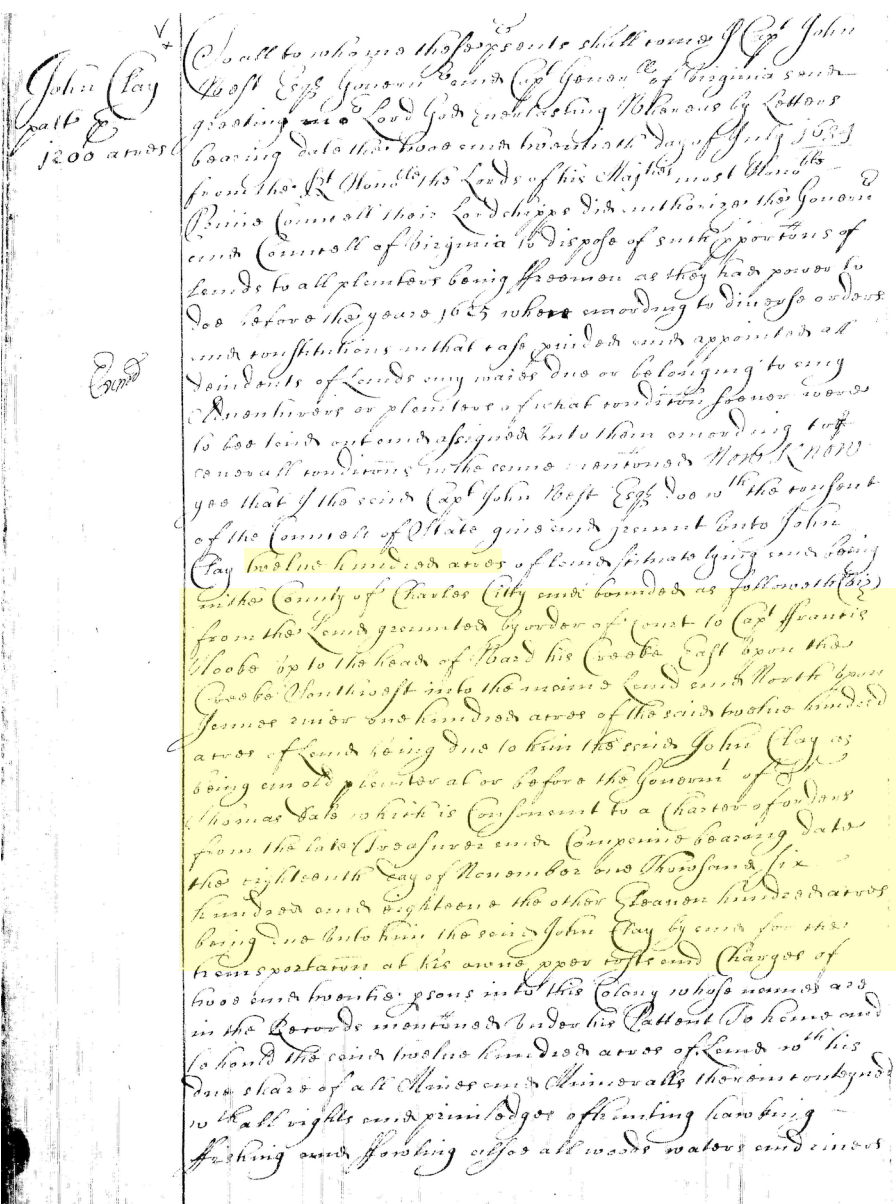 John Clay
patt &
1200 acres
To all to whome these psents shall come I Capt John
West Esqr Governr and Capt Generll of Virginia send
greeting in or Lord God Everlasting Whereas by Letters
bearing date the twoe and twentieth day of July 1634
from the Rt Honoble the Lords of his Majties most Honoble
Privie Councell their Lordshipps did authorize the Governr
and Councell of Virginia to dispose of such pportons of
Lands to all planters being ffreemen as they had power to
doe before the yeare 1625 where according to diverse orders
and constitutions in that case pvided and appointed all
devidents of Lands any waies due or belonging to any
Adventurers or planters of what conditon soever were
to bee laid out and assigned unto them according to the
severall conditons in the same mentoned Now Know
yee that I the said Capt John West Esqr doe wth the consent
of the Councell of State give and graunt unto John
Clay twelve hundred acres of land scituate lying and being
in the County of Charles Citty and bounded as followeth (viz)
from the Land graunted by order of Court to Capt ffrancis
Hooke up to the head of Ward his Creeke East upon the
Creeke Southwest into the maine Land and North upon
James river one hundred acres of the said twelve hundred
acres of Land being due to him the said John Clay as
being an old planter at or before the Governmt of Sr
Thomas Dale which is Consonant to a Charter of orders
from the late Treasurer and Companie bearing date
the eighteenth day of November one Thowsand six
hundred and eighteene the other Eleaven hundred acres
being due unto him the said John Clay by and for the
transportaton at his owne pper costs and Charges of
twoe and twentie psons into this Colony whose names are
in the Records mentoned under his Pattent To have and
to hould the said twelve hundred acres of Land wth his
due share of all Mines and Minneralls therein conteyned
wth all rights and priviledges of hunting hawking
ffishing and ffowling alsoe all woods waters and rivers